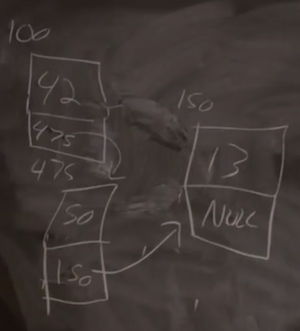 100
42
475
475
50
150
150
13
NULL